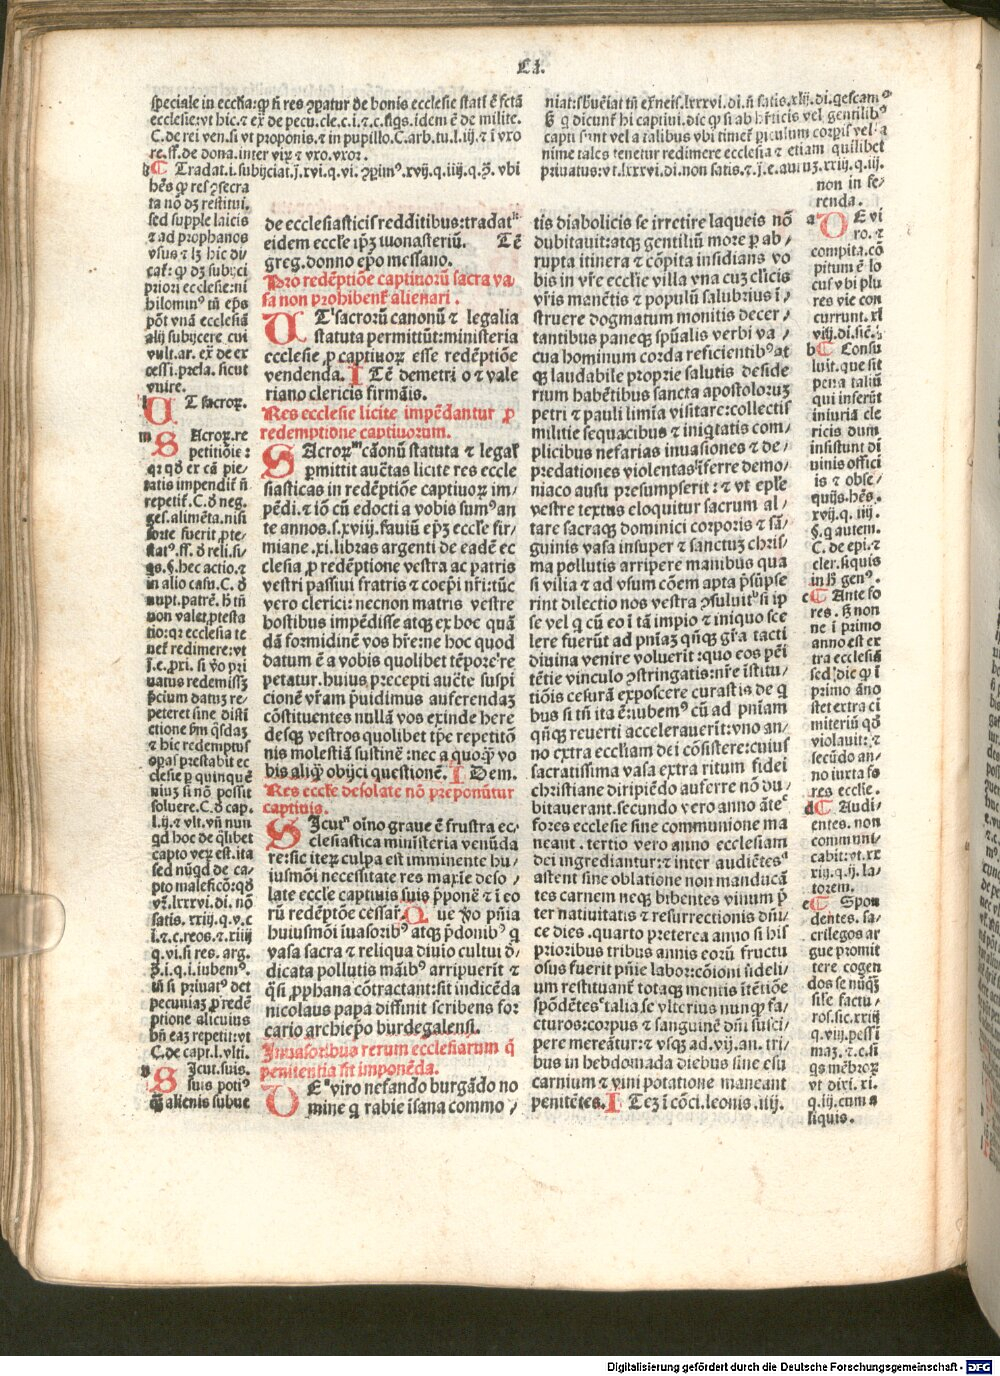 Cā.
speciale in ecclia: qp ñ res ꝯpatur de bonis ecclesie stati ē fctā
ecclesie: vt hic. ⁊ ex̄ de pecu. cle. c. i. ⁊ c. siqs. idem ē de milite.
C. de rei ven. si vt proponis. ⁊ in pupillo. C. arb. tu. l. iij. ⁊ i vxo
re. ff. de dona. inter virꝫ ⁊ vxo. vxor.
Tradat. i. subijciat. j. xvi. q. vi. ꝯprim⁹. xvij. q. iiij. q. ꝫ. vbi
bēs qp res ꝯsecra
ta nō dꝫ restitui.
sed supple laicis
⁊ ad prophanos
vsus ⁊ lꝫ hic di
cat̄: qp dꝫ subijci
priori ecclesie: ni
hilomin⁹ tñ ep̄s
pōt vnā ecclesiā
alij subijcere cui
vult. ar. ex̄ de ex
cessi. prela. sicut
vnire.
AT sacroꝝ.
m SAcroꝝ. re
petitiōie:
qꝛ qđ er cā pie/
tatis impendit̄ ñ
repetit̄. C. đ neg.
ges. alimēta. nisi
forte fuerit ꝓte/
stat⁹. ff. đ reli. si/
qs. §. hec actio. ⁊
in alio casu. C. đ
nupt. patrē. ꝧ tñ
non valet ꝓtesta
tio: qꝛ ecclesia te
net̄ redimere: vt
j. e. ꝓxi. si ꝟo pri
uatus redemissꝫ
pcium datuꝫ re/
peteret sine disti
ctione ẜm qsdaꝫ
⁊ hic redemptus
oꝑas prestabit ec
clesie p quinquē
niuꝫ si nō possit
soluere. C. đ cap.
l. ij. ⁊ vlt. vñ nun
qd hoc de qlibet
capto veꝝ est. ita
sed nūqd de ca/
pto maleficō: qđ
vr̄. lxxxvi. di. nō
satis. xxiij. q. v. c
i. ⁊ c. reos. ⁊. xiiij
q. vi. si res. arg.
ꝫ. i. q. i. iubem⁹.
tñ si priuat⁹ det
pecuniaꝫ ꝓ redē
ptione alicuius
bñ eaꝫ repetit: vt
C. de capt. l. vlti.
n SIcut. suis.
suis poti⁹
qꝫ alienis subue
de ecclesiasticis redditibus: tradat
eidem eccle ipꝫ monasteriū. Tē
greg. donno epō messano.
Pro redēptiōe captiuoꝛū sacra va/
sa non prohibent̄ alienari.
AT sacroꝛū canonū ⁊ legalia
statuta permittūt: ministeria
ecclesie ꝓ captiuoꝝ esse redēptiōe
vendenda. ITē demetrio ⁊ vale
riano clericis firmāis.
Res ecclesie licite impēdantur ꝓ
redemptione captiuorum.
SAcroꝝ cānonū statuta ⁊ legaƚ
permittit auc̄tas licite res eccle
siasticas in redēptiōe captiuoꝝ im/
pēdi. ⁊ iō cū edocti a vobis sum⁹ an
te annos. s. xviii. fauiū epꝫ eccle fir/
miane. xi. libras argenti de eadē ec
clesia ꝓ redēptione vestra ac patris
vestri passiui fratris ⁊ coep̄i nr̄i: tūc
vero clerici: necnon matris vestre
hostibus impēdisse atqꝫ ex hoc quā
dā formidinē vos hr̄e: ne hoc quod
datum ē a vobis quolibet tēpore re
petatur. huius ꝓrecepti auc̄te suspi
cionē vr̄am puidimus auferendaꝫ
cōstituentes nullā vos exinde here
desqꝫ vestros quolibet tpe repetitō
nis molestiā sustinē: nec a quoqꝫ vo
bis aliqꝫ obijci questionē. IDem.
Res eccle desolate nō preponūtur
captiuis.
SIcut oīno graue ē frustra ec/
clesiastica ministeria venūda
re: sic iteꝝ culpa est imminente hu/
iusmōi necessitate res maxīe deso/
late eccle captiuis suis pponē ⁊ i eo
rū redēptōe cessar̄. Que ꝟo pn̄ia
huiusmōi iuasorib⁹ atqꝫ pdonib⁹ q
vasa sacra ⁊ reliqua diuīo cultui đ/
dicata pollutis māib⁹ arripuerit ⁊
qsi ꝓphana cōtractant: sit indicēda
nicolaus papa diffinit scribens for
cario archiepo burdegalensi.
Inuasoribus rerum ecclesiarum q̄
penitentia sit imponēda.
DE viro nefando burgādo no
mine q rabie īsana commo/
niat: sbueiat tñ ex̄neis. lxxxvi. di. ñ satis. xlij. di. qescam⁹
ꝧ q dicunt̄ hi captiui. dic qp si ab hr̄ticis vel gentilib⁹
capti sunt vel a talibus vbi timet̄ piculum corpis vel a
nime tales tenetur redimere ecclesia ⁊ etiam quilibet
priuatus: vt. lxxxvi. di. non satis. ⁊ j. e. auruꝫ. xxiij. q. iij.
non in fe/
renda.
tis diabolicis se irretire laqueis nō
dubitauit: atqꝫ gentiliū more p ab/
rupta itinera ⁊ cōpita insidians vo
bis in vr̄e eccle villa vna cuꝫ clicis
vr̄is manētis ⁊ populū salubrius i/
struere dogmatum monitis decer/
tantibus paneqꝫ spūalis verbi va/
cua hominum corda reficientib⁹ at
qꝫ laudabile proprie salutis deside
rium habētibus sancta apostoloruꝫ
petri ⁊ pauli limīa visitare: collectis
militie sequacibus ⁊ iniqtatis com/
plicibus nefarias inuasiones ⁊ de/
predationes violentas iferre demo/
niaco ausu presumpserit: ⁊ vt eple
vestre textus eloquitur sacrum al/
tare sacraqꝫ dominici corporis ⁊ sā/
guinis vasa insuper ⁊ sanctuꝫ chris/
ma pollutis arripere manibus qua
si vilia ⁊ ad vsum cōem apta psūpse
rint dilectio nos vestra ꝯsuluit: si ip
se vel q cū eo i tā impio ⁊ iniquo sce
lere fuerūt ad pniaꝫ qn̄qꝫ gr̄a tacti
diuina venire voluerit: quo eos pēi
tētie vinculo ꝯstringatis: nr̄e īstitu/
tiōis cesurā exposcere curastis de q
bus si tñ ita ē: iubem⁹ cū ad pn̄iam
qn̄qꝫ reuerti accelerauerit: vno an/
no extra eccliam dei cōsistere: cuius
sacratissima vasa extra ritum fidei
christiane diripiēdo auferre nō du/
bitauerant. secundo vero anno āte
fores ecclesie sine communione ma
neant. tertio vero anno ecclesiam
dei ingrediantur: ⁊ inter audiētes
astent sine oblatione non manducā
tes carnem neqꝫ bibentes vinum p
ter natiuitatis ⁊ resurrectionis dn̄i/
ce dies. quarto preterea anno si his
prioribus tribus annis eoꝛū fructu
osus fuerit pn̄ie labor: cōioni fideli/
um restituant̄ totaqꝫ mentis itētiōe
spōdētes talia se vlterius nunqꝫ fa/
cturos: corpus ⁊ sanguinē dn̄i susci/
pere mereātur: ⁊ vsqꝫ ad. vij. an. tri/
bus in hebdomada diebus sine esu
carnium ⁊ vini potatione maneant
penitētes. ITeꝫ i cōci. leonis. iiij.
a DE vi
ro. ⁊
compita. cō
pitum ē lo
cus vbi plu
res vie con
currunt. xl
viij. di. sic.
b Consu
luit. que sit
pena taliū
qui inserūt
iniuria cle
ricis dum
insistunt di
uinis offici
is ⁊ obse/
quijs. hēs.
xvij. q. iiij.
§. q autem.
C. de epi. ⁊
cler. siquis
in ꝧ gen⁹.
c Ante fo
res. ꝧ non
ne i primo
anno est ex
tra ecclesiā
sed dic qp i
primo āno
stet extra ci
miteriū qđ
violauit: ⁊
secūdo an/
no iuxta fo
res eccle.
d Audi/
entes. non
communi/
cabit: vt. xx
xiij. q. ij. la/
torem.
e Spon
dentes. sa/
crilegos ar
gue promit
tere cogen
dos se nūqꝫ
sile factu/
ros. sic. xxiij
q. viij. pessi
maꝫ. ⁊. c. si
qs mēbroꝝ
vt dixi. xi.
q. iij. cum a
liquis.
Digitalisierung gefördert durch die Deutsche Forschungsgemeinschaft - DFG